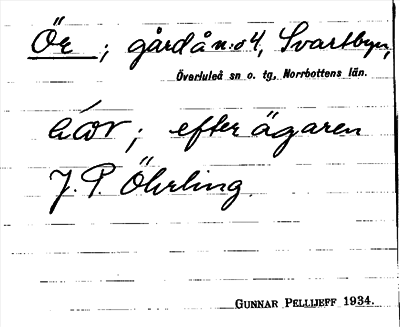 Ör ; gård å n:o 4, Svartbyn,
Överluleå sn o. tg., Norrbottens län.
; efter ägaren
J. P. Öhrling.
GUNNAR PELLIJEFF 1934.